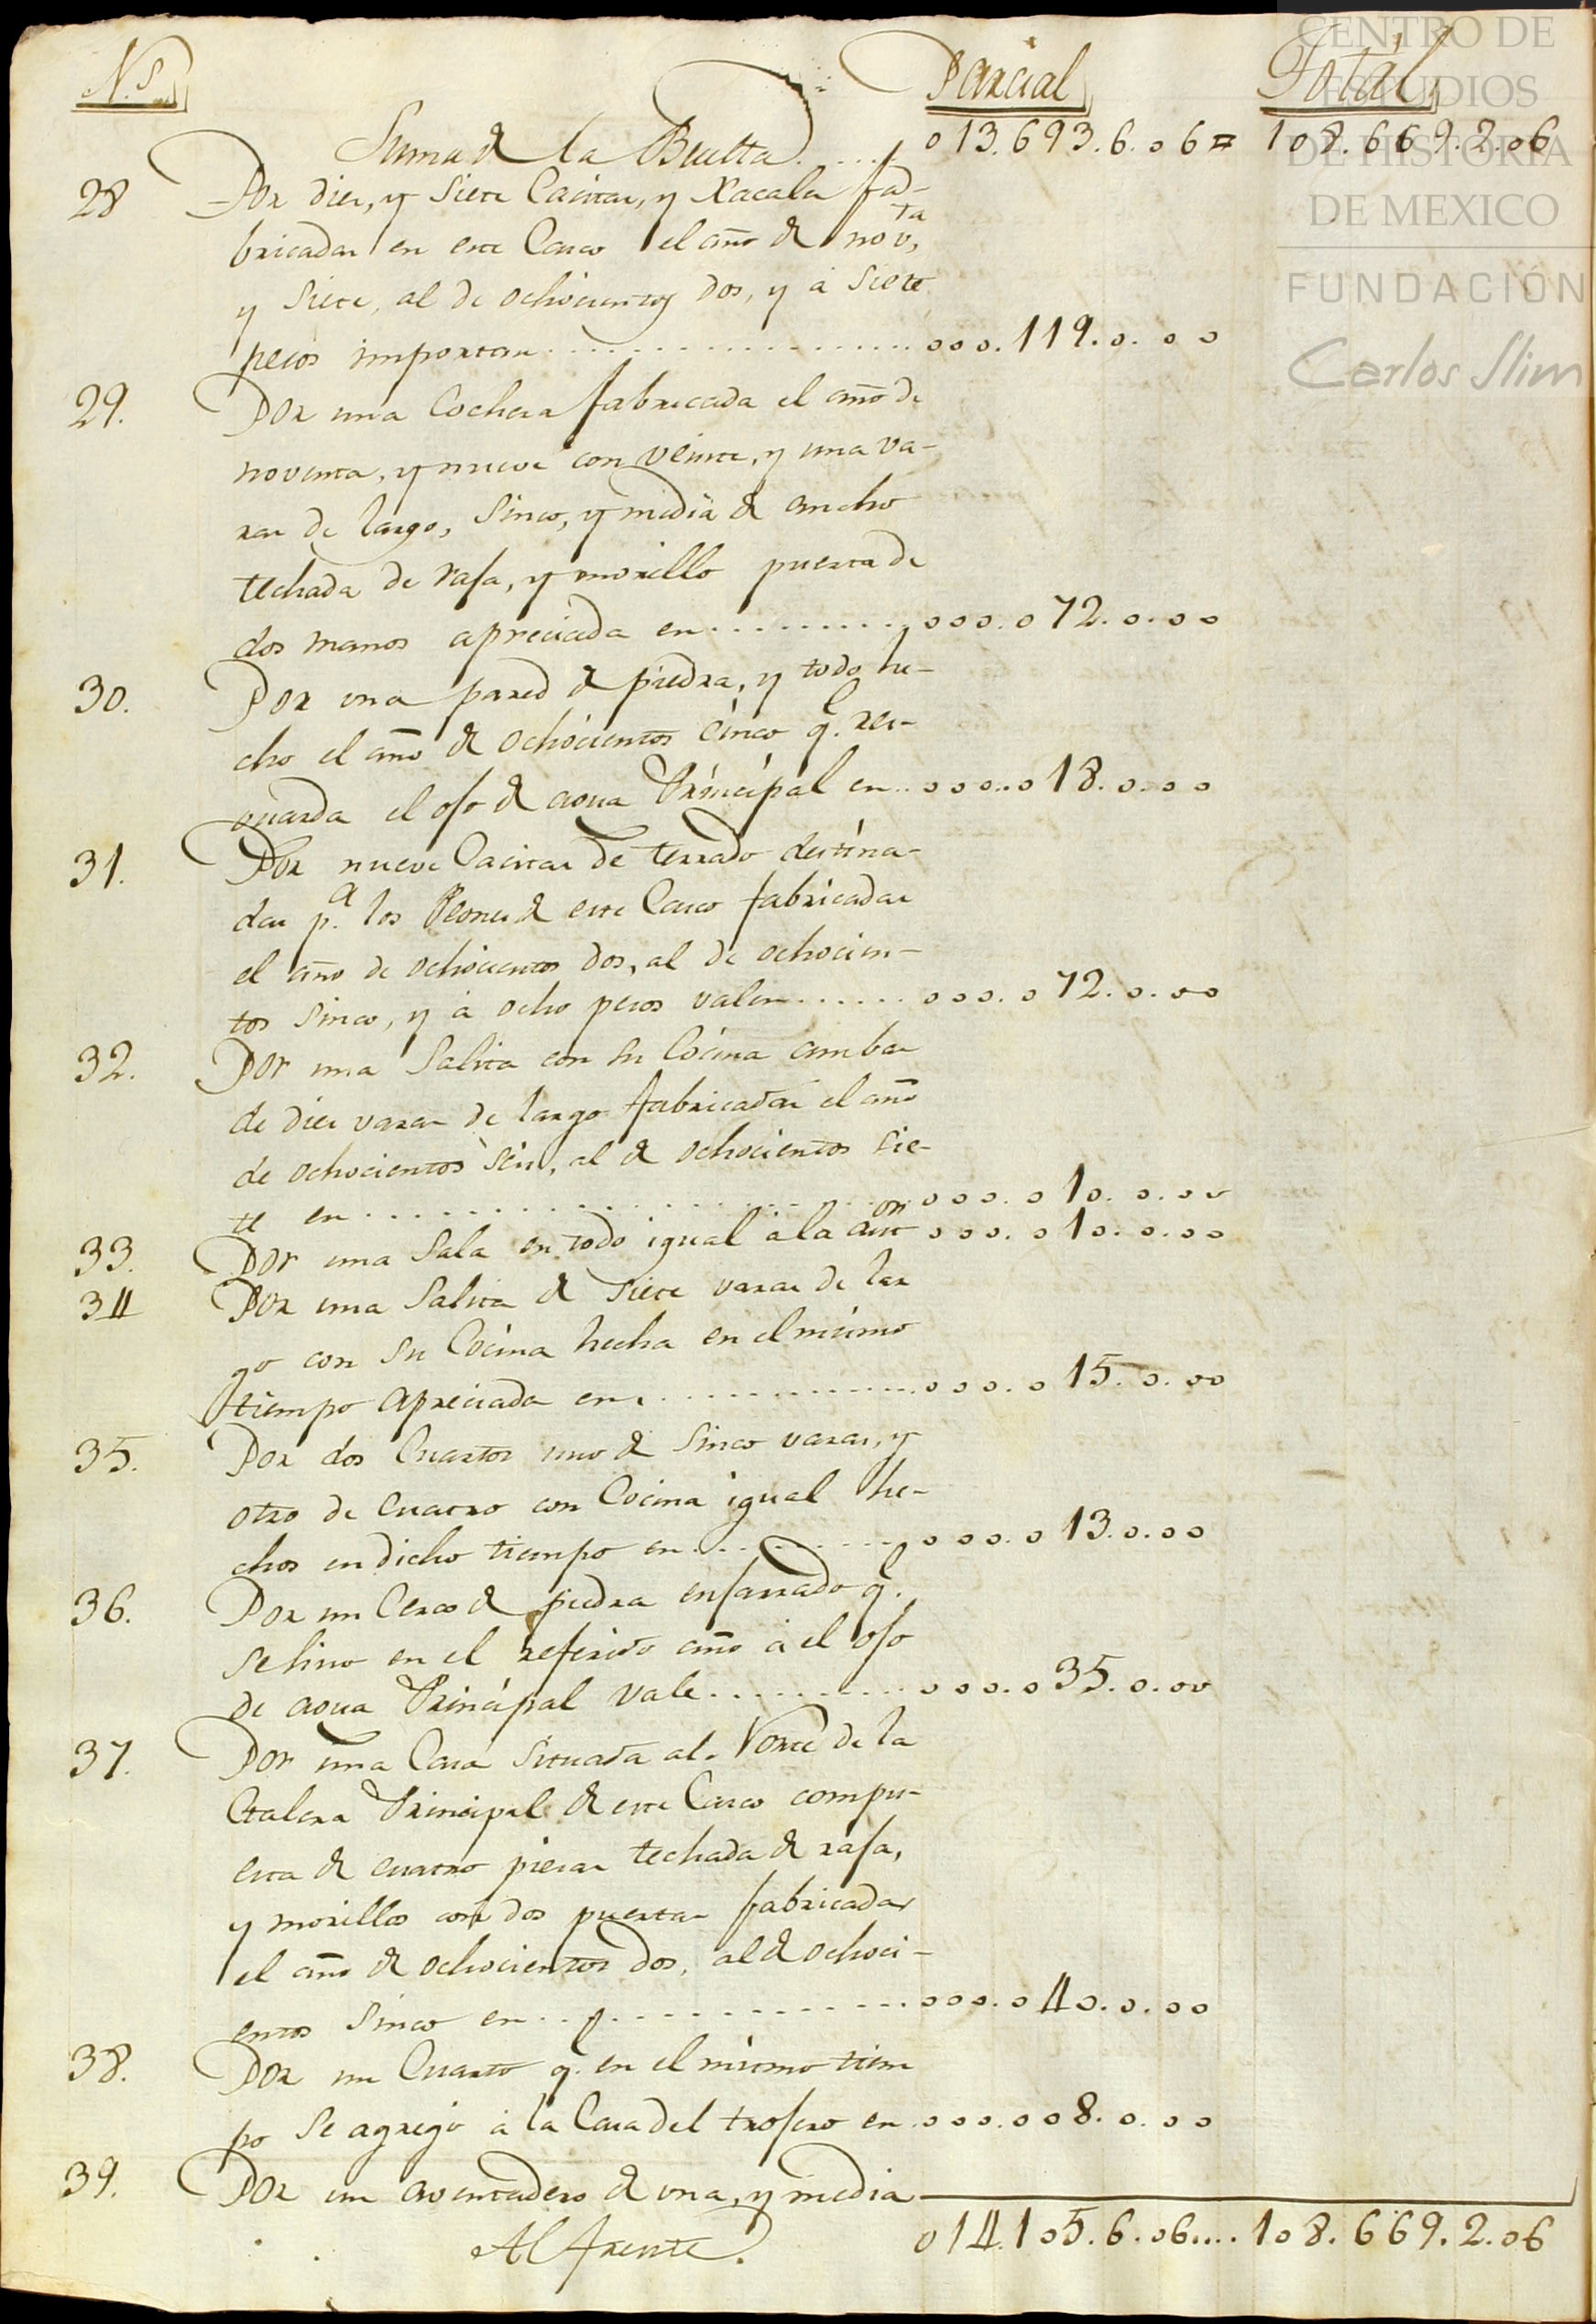 N.s Parcial Total
Suma de la Buelta..... 013.693.6.06= 108.669.2.06
28 Por diez, y siete Casitas, y Xacales fa-
bricadas en este Casco el año de nov.ta
y siete, al de ochocientos dos, y à siete
pesos importan.................. 000.119.0.00
29. Por una Cochera fabricada el año de
noventa, y nueve con veinte, y una va-
ras de largo, sinco, y media de ancho
techada de rafa, y morillo puerta de
dos manos apreciada en......... 000.072.0.00
30. Por una pared de piedra, y todo he-
cho el año de ochocientos cinco q.e res-
guarda el ofo de agua Principal en.. 000.018.0.00
31. Por nueve Casitas de terrado destina-
das p.a los Peones de este Casco fabricadas
el año de ochocientos dos, al de ochocien-
tos sinco, y à ocho pesos valen...... 000.072.0.00
32. Por una Salita con su Cocina ambas
de diez varas de largo fabricadas el año
de ochocientos seis, al de ochocientos sie-
te en.................. 000.010.0.00
33. Por una Sala en todo igual à la ant.or 000.010.0.00
34 Por una Salita de siete varas de lar
go con su Cocina hecha en el mismo
tiempo apreciada en............... 000.015.0.00
35. Por dos Cuartos uno de sinco varas, y
otro de cuatro con Cocina igual he-
chos en dicho tiempo en.......... 000.013.0.00
36. Por un Cerco de piedra enfarrado q.e
se hiso en el referido año à el ofo
de agua Principal vale.......... 000.035.0.00
37. Por una Casa situada al Norte de la
Galera Principal de este Casco compu-
esta de cuatro piesas techada de rafa,
y morillos con dos puertas fabricadas
el año de ochocientos dos, al de ochoci-
entos sinco en.............. 000.040.0.00
38. Por un Cuarto q.e en el mismo tiem
po se agregó à la Casa del trofero en 000.008.0.00
39. Por un aventadero de una, y media
Al frente. 014.105.6.06.... 108.669.2.06
CENTRO DE
ESTUDIOS
DE HISTORIA
DE MEXICO
FUNDACIÓN
Carlos Slim